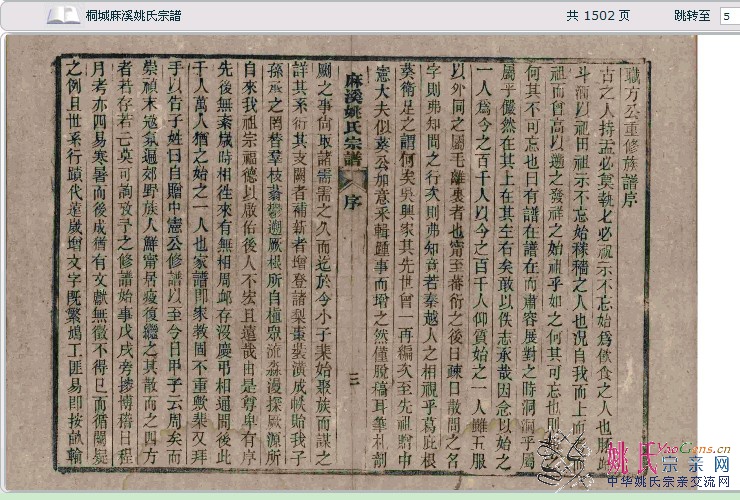 桐城麻溪姚氏宗譜
共 1502 页
跳转至
5
職方公重修族譜序
古之人持盂必奠執匕必祖示不忘始爲飲食之人也
斗酒以祖田祖示不忘始稼穡之人也況自我而上而
祖而曾高以遞之發祥之始祖乎如之何其可忘也則
何其不可忘也曰有譜在譜在而肅容展對之時洞洞乎屬
屬乎儼然在其上在其左右矣敢以佚志承哉因念以始之
一人爲今之百千人以今之百千人仰質始之一人雖五服
以外同之屬毛離裏者也甯至蕃衍之後日疎日散問之名
字則弗知問之行次則弗知竟若秦越人之相視乎葛庇根
葵衛足之謂何矣吳興家其先世曾一再編次至先祖贈中
憲大夫似葵公加意釆輯踵事而增之然僅脫稿耳筆札剞
麻溪姚氏宗譜 序 三
劂之事尙取諸需需之久而迄於今小子棐始聚族而謀之
詳其系衍其支闕者補新者增登諸梨棗裝潢成帙貽我子
孫承之罔替羣枝蓊鬱遡厥根所自植眾流淼漫探厥源所
自來我祖宗福德以啟佑後人不宏且遠哉由是尊卑有序
先後無紊歲時相徃來有無相周䘏存沒慶弔相通聞後此
千人萬人猶之始之一人也家譜卽家教固不重歟棐又拜
手以告子姓曰自贈中憲公修譜以至今日甲子云周矣而
崇禎末寇氛遍郊野族人鮮甯居疫復繼之其散而之四方
者若存若亡莫可詢攷予之修譜始事戊戌旁搜博稽日程
月考亦四易寒暑而後成猶有文獻無徵不得已而循闕疑
之例且世系行蹟代逹歲增文字旣繁鳩工匪易卽按畝輸
姚氏宗亲网
YaoGens.cn
中华姚氏宗亲交流网